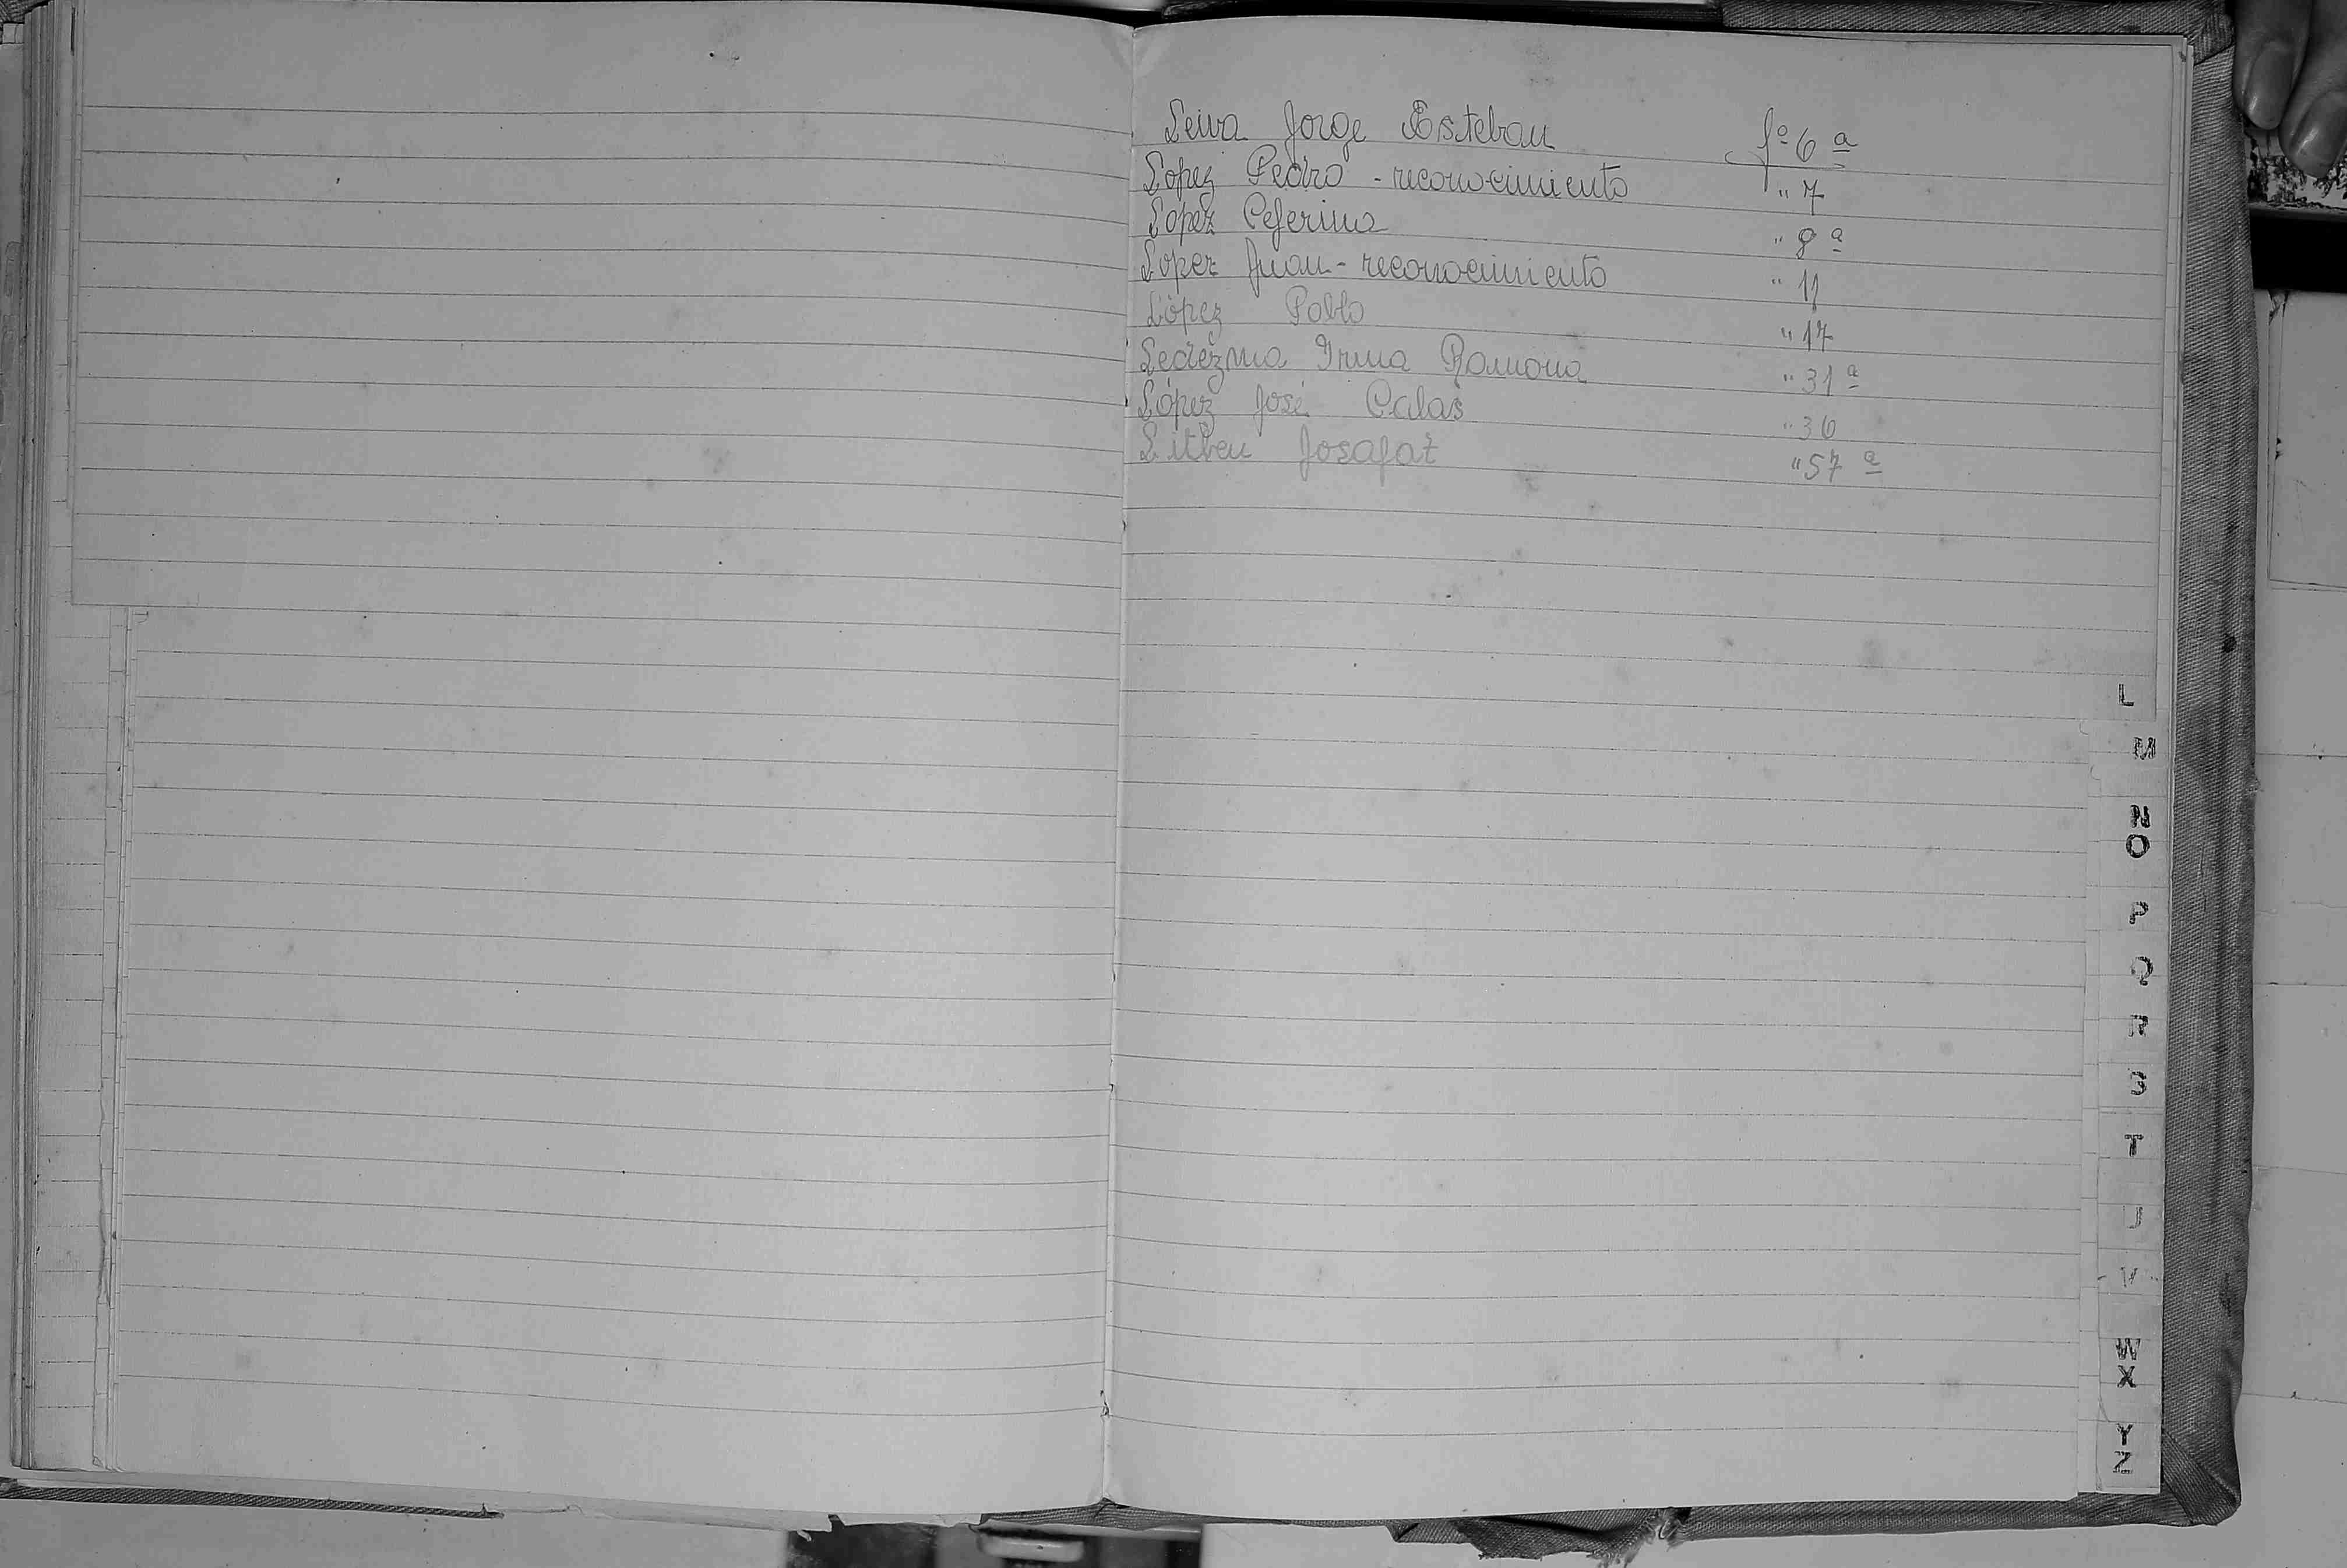 Leiva Jorge Esteban fº 6 ª
Lopez Pedro - reconocimiento " 7
Lopez Ceferina " 8 ª
Lopez Juan - reconocimiento " 11
López Pablo " 17
Ledezma Irma Ramona " 31 ª
López José Calas " 36
Josafat " 57 ª
L
M
N
O
P
Q
R
S
T
U
V
W
X
Y
Z